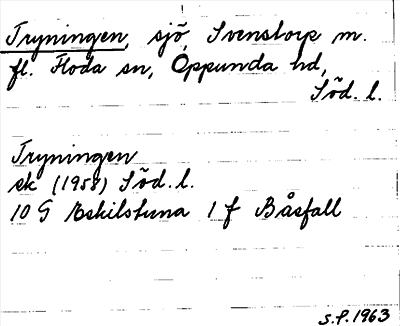 Tryningen, sjö, Svenstorp m.
fl. Floda sn, Oppunda hd,
Söd. l.
Tryningen
sk (1958) Söd. l.
10 G Eskilstuna 1 f Båsfall
S.P. 1963